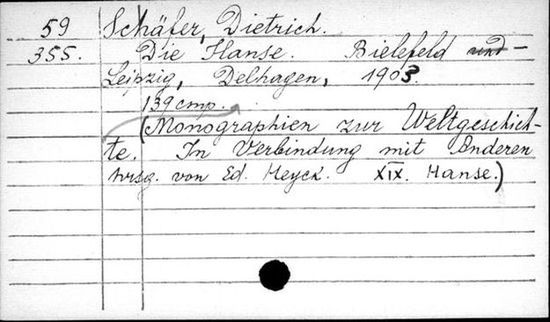 59 Schäfer, Dietrich.
355. Die Hanse. Bielefeld und -
Leipzig, Delhagen, 1903.
139 cmp.
(Monographien zur Weltgeschich-
te. In Verbindung mit Anderen
hrsg. von Ed. Heyck. XIX. Hanse.)